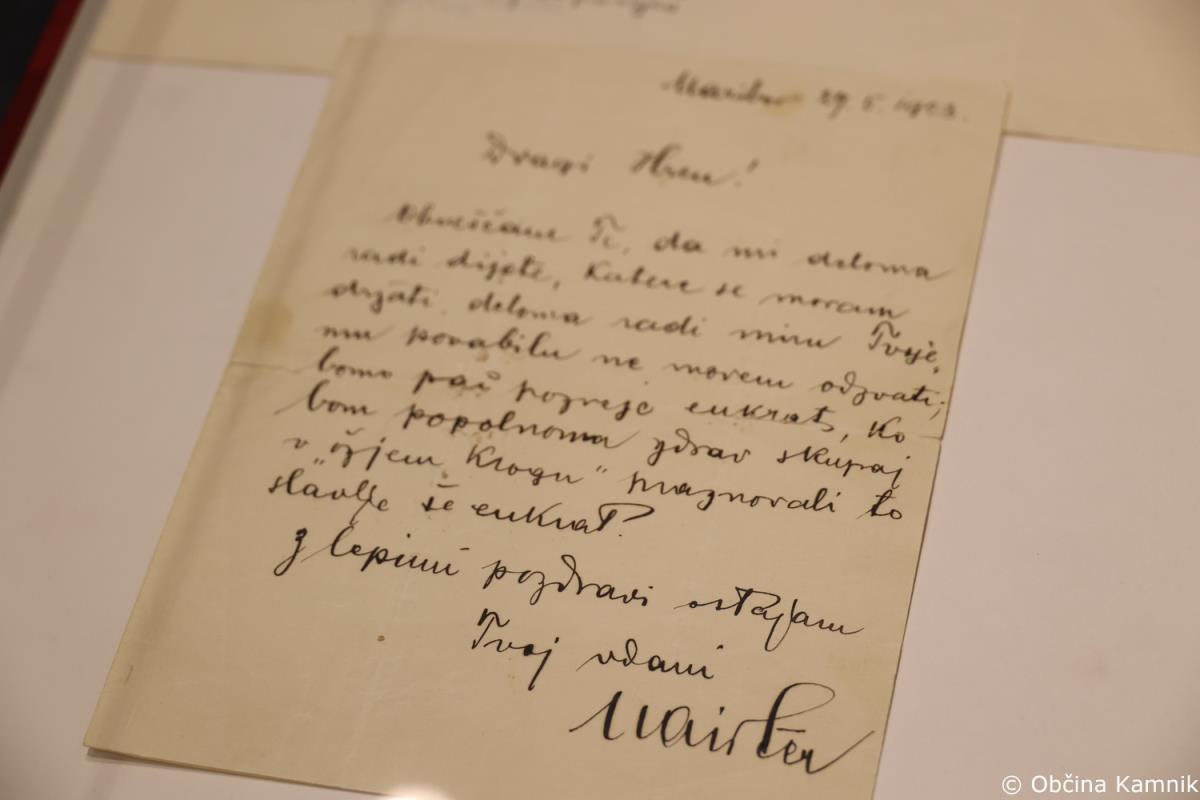 Maribor 29. 5. 1923.
Dragi Hren!
Obveščam Te, da mi deloma
radi dijete, katere se moram
držati, deloma radi miru Tvoje,
mu povabilu ne morem odzvati;
bomo pač pozneje enkrat, ko
bom popolnoma zdrav skupaj
v „ožjem krogu“ praznovali to
slavlje še enkrat?
Z lepimi pozdravi ostajam
Tvoj vdani
Maister
© Občina Kamnik